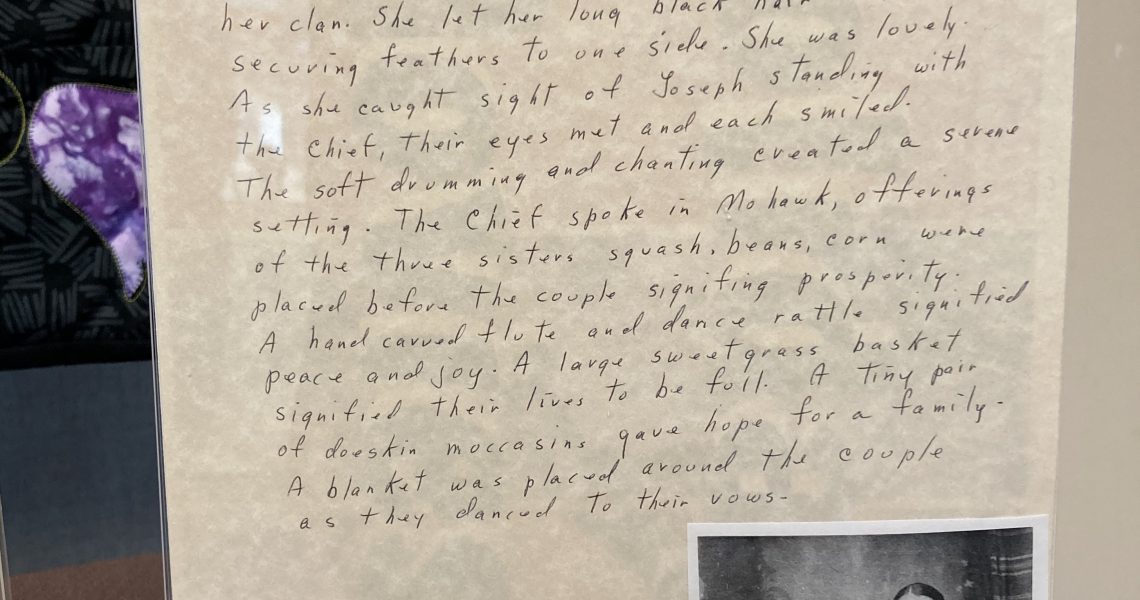 her clan. She let her long black hair
securing feathers to one side. She was lovely.
As she caught sight of Joseph standing with
the Chief, their eyes met and each smiled.
The soft drumming and chanting created a serene
setting. The Chief spoke in Mohawk, offerings
of the three sisters squash, beans, corn were
placed before the couple signifing prosperity.
A hand carved flute and dance rattle signified
peace and joy. A large sweetgrass basket
signified their lives to be full. A tiny pair
of doeskin moccasins gave hope for a family.
A blanket was placed around the couple
as they danced to their vows.